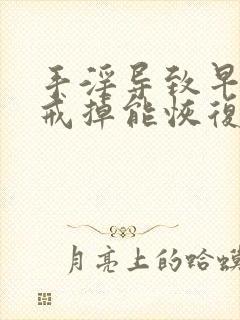 手淫导致早
戒掉能恢復
月亮上的蛤蟆